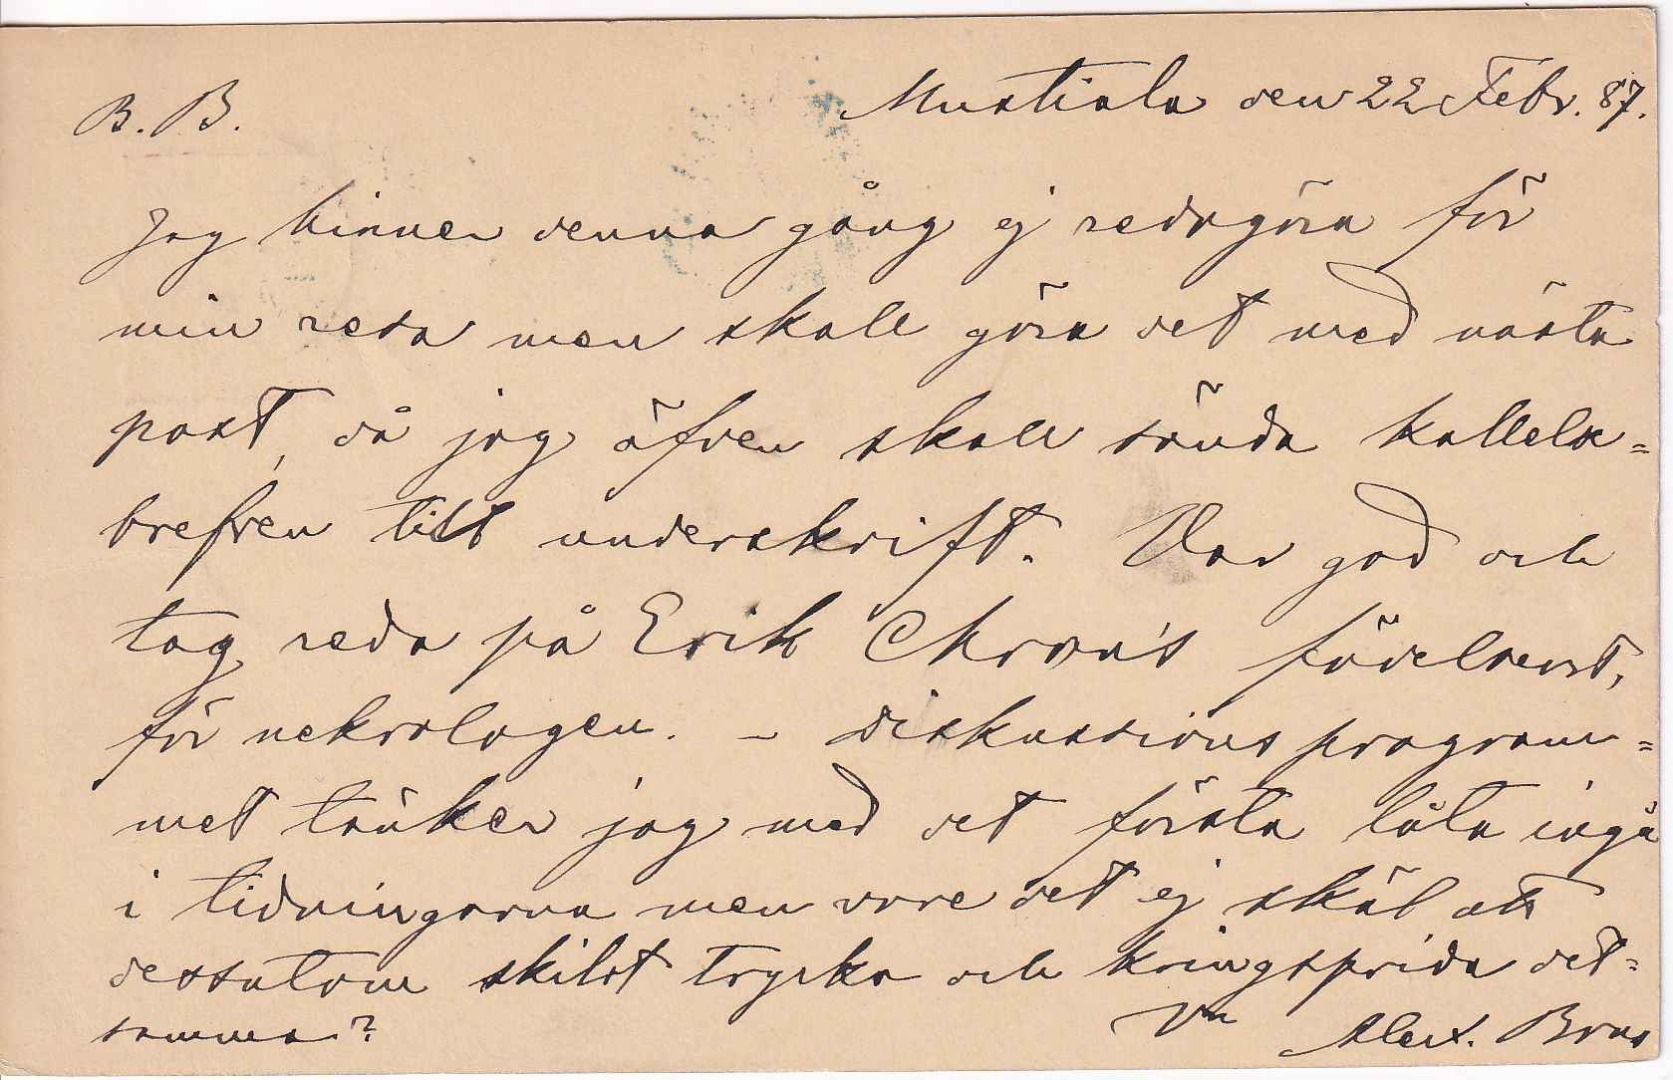 B. B.
Mustiala den 22 Febr. 87.
Jag hinner denna gång ej redogöra för
min resa men skall göra det med nästa
post, då jag äfven skall sända kallelse=
brefven till underskrift. Var god och
tag reda på Erik födelseort,
för nekrologen. – Diskussionsprogram=
met tänker jag med det första låta ingå
i tidningarna men vore det ej skäl att
dessutom skildt trycka och kringsprida det=
samma?
Vn Alex. Brus